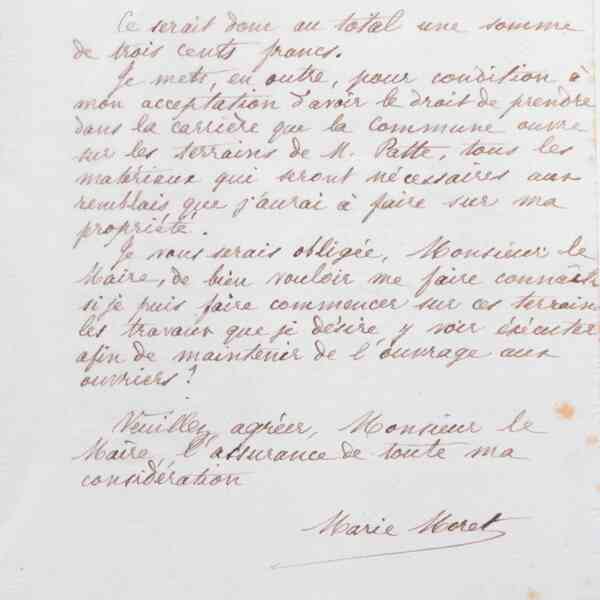 Ce serait donc au total une somme
de trois cents francs.
Je mets, en outre, pour condition à
mon acceptation d'avoir le droit de prendre
dans la carrière que la Commune ouvre
sur les terrains de M. Patte, tous les
matériaux qui seront nécessaires aux
remblais que j'aurai à faire sur ma
propriété.
Je vous serais obligée, Monsieur le
Maire, de bien vouloir me faire connaître
si je puis faire commencer sur ces terrains
les travaux que je désire y voir éxécuter
afin de maintenir de l'ouvrage aux
ouvriers?
Veuillez agréer, Monsieur le
Maire, l'assurance de toute ma
considération
Marie Moret